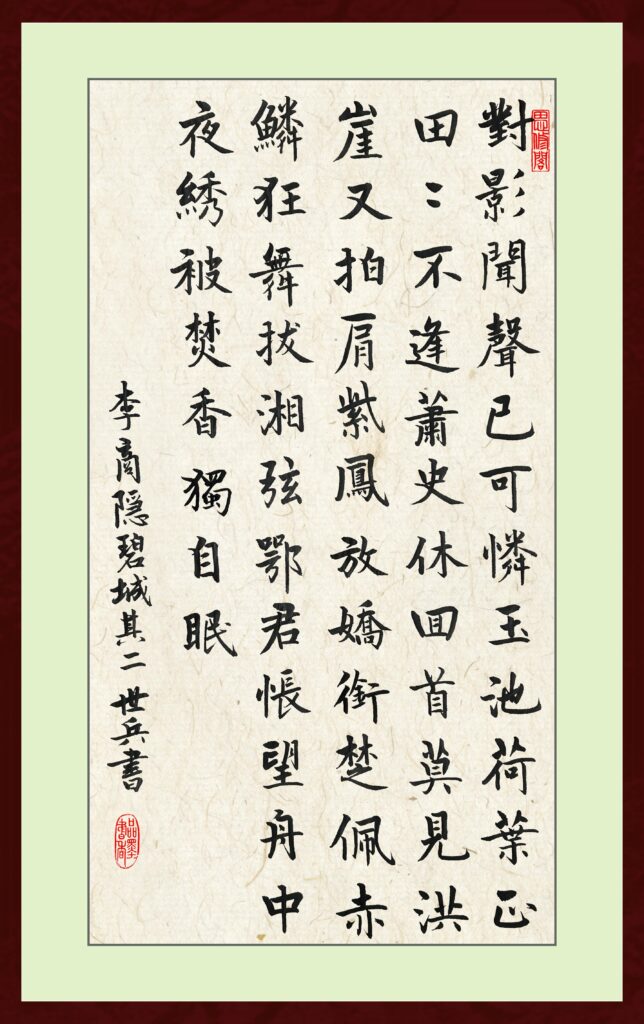 對影聞聲已可憐玉池荷葉正
田〻不逢蕭史休囬首莫見洪
崖又拍肩紫鳳放嬌銜楚佩赤
鱗狂舞拔湘弦鄂君悵望舟中
夜綉被焚香獨自眠
李商隐碧城其二 世兵書